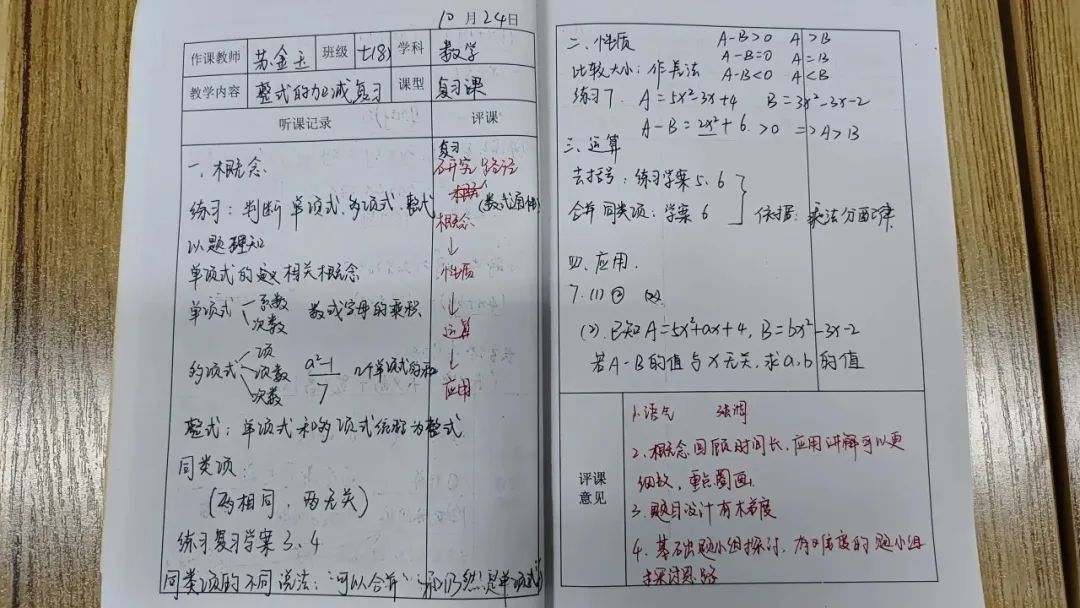 10月24日
作课教师 苏金玉 班级 七(8) 学科 数学
教学内容 整式的加减复习 课型 复习课
听课记录 评课
一、概念
练习：判断单项式、多项式、整式
以题理知
单项式的定义相关概念
单项式 系数 次数 数或字母的乘积
多项式 项 项数 次数 a²-1/7 几个单项式的和
整式：单项式和多项式统称为整式
同类项：
(两相同，两无关)
练习复习学案3、4
同类项的不同说法：“可以合并” “和仍然是单项式”
复习
研究路径
(数式通性)
概念
↓
性质
↓
运算
↓
应用
二、性质 A-B>0 A>B
A-B=0 A=B
比较大小：作差法 A-B<0 A<B
练习7. A=5x²-3x+4 B=3x²-3x-2
A-B=2x²+6>0 => A>B
三、运算
去括号：练习学案5、6
合并同类项：学案6 依据：乘法分配律
四、应用.
7.(1)② (2)
(2).已知A=5x²+ax+4, B=bx²-3x-2
若A-B的值与x无关,求a、b的值
评课意见
1.语气 强调
2.概念回顾时间长,应用讲解可以更
细致,重点圈画.
3.题目设计有梯度
4.基础题小组探讨,有难度的题小组
探讨思路